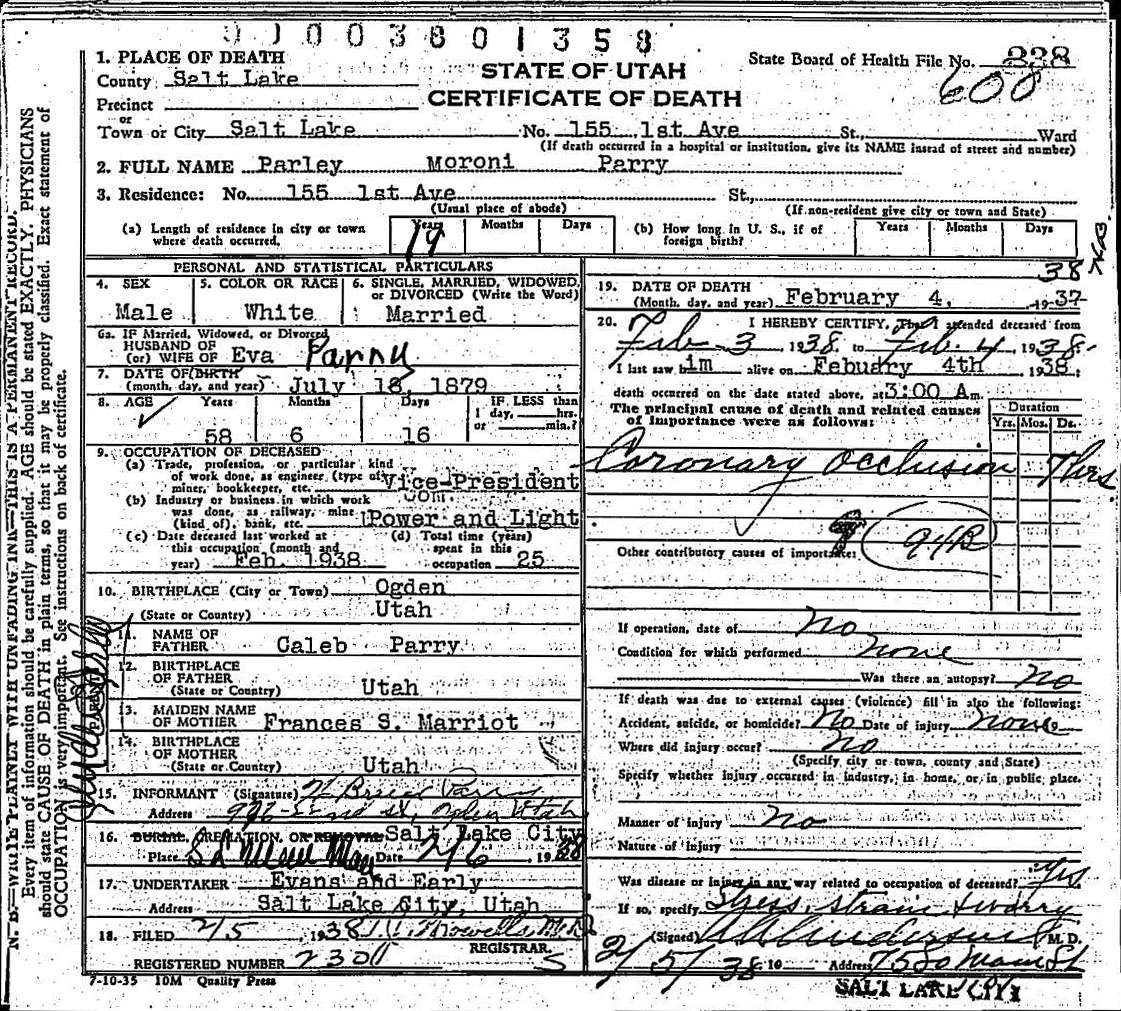 0003801358
1. PLACE OF DEATH
STATE OF UTAH
State Board of Health File No. 238
County Salt Lake
608
CERTIFICATE OF DEATH
Precinct
or
Town or City Salt Lake No. 155 1st Ave St., Ward
(If death occurred in a hospital or institution, give its NAME instead of street and number)
2. FULL NAME Parley Moroni Parry
3. Residence: No. 155 1st Ave St.,
(Usual place of abode) (If non-resident give city or town and State)
(a) Length of residence in city or town where death occurred. Years 19 Months Days
(b) How long in U. S., if of foreign birth? Years Months Days
PERSONAL AND STATISTICAL PARTICULARS
4. SEX 5. COLOR OR RACE 6. SINGLE, MARRIED, WIDOWED, or DIVORCED (Write the Word)
Male White Married
6a. IF Married, Widowed, or Divorced
HUSBAND OF
(or) WIFE OF Eva Parry
7. DATE OF BIRTH
(month, day, and year) July 18, 1879
8. AGE Years Months Days IF LESS than
1 day, hrs.
or min.?
58 6 16
9. OCCUPATION OF DECEASED
(a) Trade, profession, or particular kind
of work done, as engineer (type of
miner, bookkeeper, etc. Vice-President
(b) Industry or business in which work Com.
was done, as railway, mine
(kind of), bank, etc. Power and Light
(c) Date deceased last worked at
this occupation (month and
year) Feb. 1938
(d) Total time (years)
spent in this
occupation 25
10. BIRTHPLACE (City or Town) Ogden
(State or Country) Utah
11. NAME OF
FATHER Caleb Parry
12. BIRTHPLACE
OF FATHER
(State or Country) Utah
13. MAIDEN NAME
OF MOTHER Frances S. Marriot
14. BIRTHPLACE
OF MOTHER
(State or Country) Utah
15. INFORMANT (Signature)
Address Ogden Utah
16. BURIAL, CREMATION, OR REMOVAL Salt Lake City
Place Date 2/6, 1938
17. UNDERTAKER Evans and Early
Address Salt Lake City, Utah
18. FILED 2/5, 1938
REGISTRAR.
REGISTERED NUMBER 230
7-10-35 10M Quality Press
38
19. DATE OF DEATH
(Month, day, and year) February 4, 1937
20. I HEREBY CERTIFY, That I attended deceased from
Feb 3 1938 to Feb. 4, 1938
I last saw him alive on Febuary 4th 1938;
death occurred on the date stated above, at 3:00 A m.
The principal cause of death and related causes
of importance were as follows:
Duration
Yrs. Mos. Ds.
Coronary Occlusion 7 hrs.
94B
Other contributory causes of importance:
If operation, date of No
Condition for which performed None
Was there an autopsy? No
If death was due to external causes (violence) fill in also the following:
Accident, suicide, or homicide? No Date of injury None 19
Where did injury occur? No
(Specify city or town, county and State)
Specify whether injury occurred in industry, in home, or in public place.
Manner of injury No
Nature of injury
Was disease or injury in any way related to occupation of deceased? Yes
If so, specify Stress, strain & worry
(Signed) M. D.
2/5/38 19 Address
SALT LAKE CITY
N. B.—WRITE PLAINLY WITH UNFADING INK—THIS IS A PERMANENT RECORD.
Every item of information should be carefully supplied. AGE should be stated EXACTLY. PHYSICIANS
should state CAUSE OF DEATH in plain terms, so that it may be properly classified. Exact statement of
OCCUPATION is very important. See instructions on back of certificate.